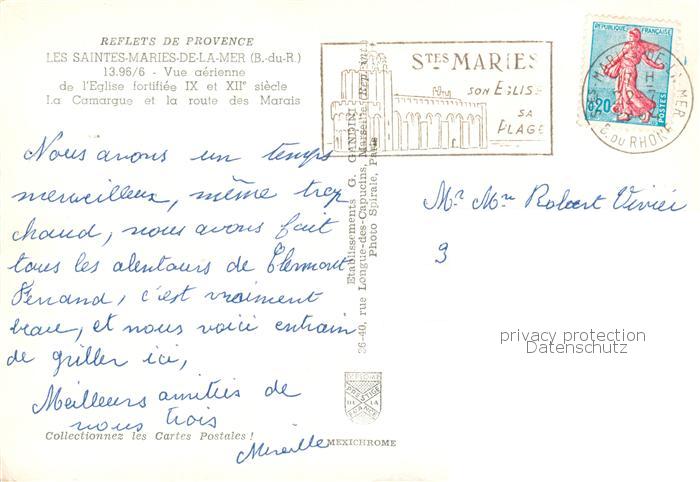 REFLETS DE PROVENCE
LES SAINTES-MARIES-DE-LA-MER (B.-du-R.)
13.96/6 - Vue aérienne
de l'Eglise fortifiée IX et XIIe siècle
La Camargue et la route des Marais
Nous avons un temps
merveilleux, même trop
chaud, nous avons fait
tous les alentours de Clermont
Ferrand, c'est vraiment
beau, et nous voici entrain
de griller ici,
Meilleurs amitiés de
nous trois
Mireille
Collectionnez les Cartes Postales !
Etablissements G. GANDINI
36-40, rue Longue-des-Capucins, Marseille
Photo Spirale, Paris
MEXICHROME
STES MARIES
SON EGLISE
SA
PLAGE
REPUBLIQUE FRANÇAISE
0,20
POSTES
STES MARIES DE LA MER
B. DU RHONE
Mr Mme Robert Vivier
9
privacy protection
Datenschutz